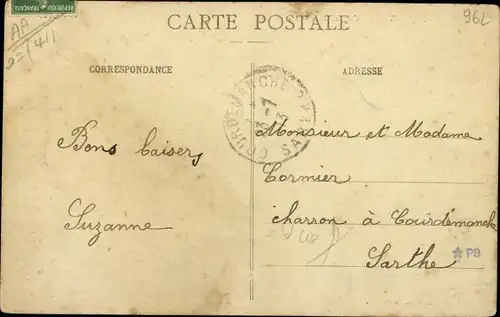 REPUBLIQUE FRANÇAISE
CARTE POSTALE
96L
AA
CORRESPONDANCE
ADRESSE
COURDEMANCHE SARTHE
Bons baisers
Suzanne
Monsieur et Madame
Cormier
charron à Courdemanche
Sarthe
PB